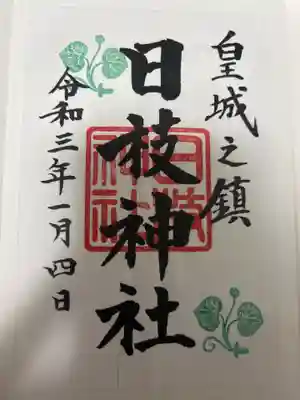 皇城之鎮
日枝神社
令和三年一月四日
日枝
神社